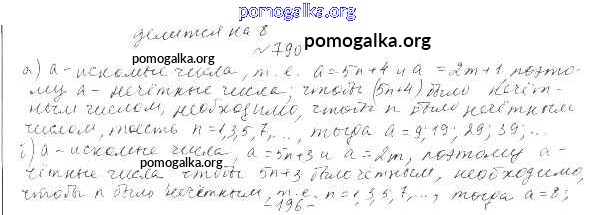 pomogalka.org
делится на 8
№790 pomogalka.org
pomogalka.org
а) а - искомые числа, т.е. а = 5n+4 и а = 2m+1, поэто-
му а - нечётные числа; чтобы (5n+4) было нечёт-
ным числом, необходимо, чтобы n было нечётным
числом, то есть n = 1,3,5,7,..., тогда а = 9; 19; 29; 39; ...
pomogalka.org
а - искомые числа, а = 5n+3 и а = 2m, поэтому а -
чётные числа чтобы 5n+3 было чётным, необходимо,
чтобы n было нечётным, т.е. n = 1,3,5,7,..., тогда а = 8;
-196-
pomogalka.org